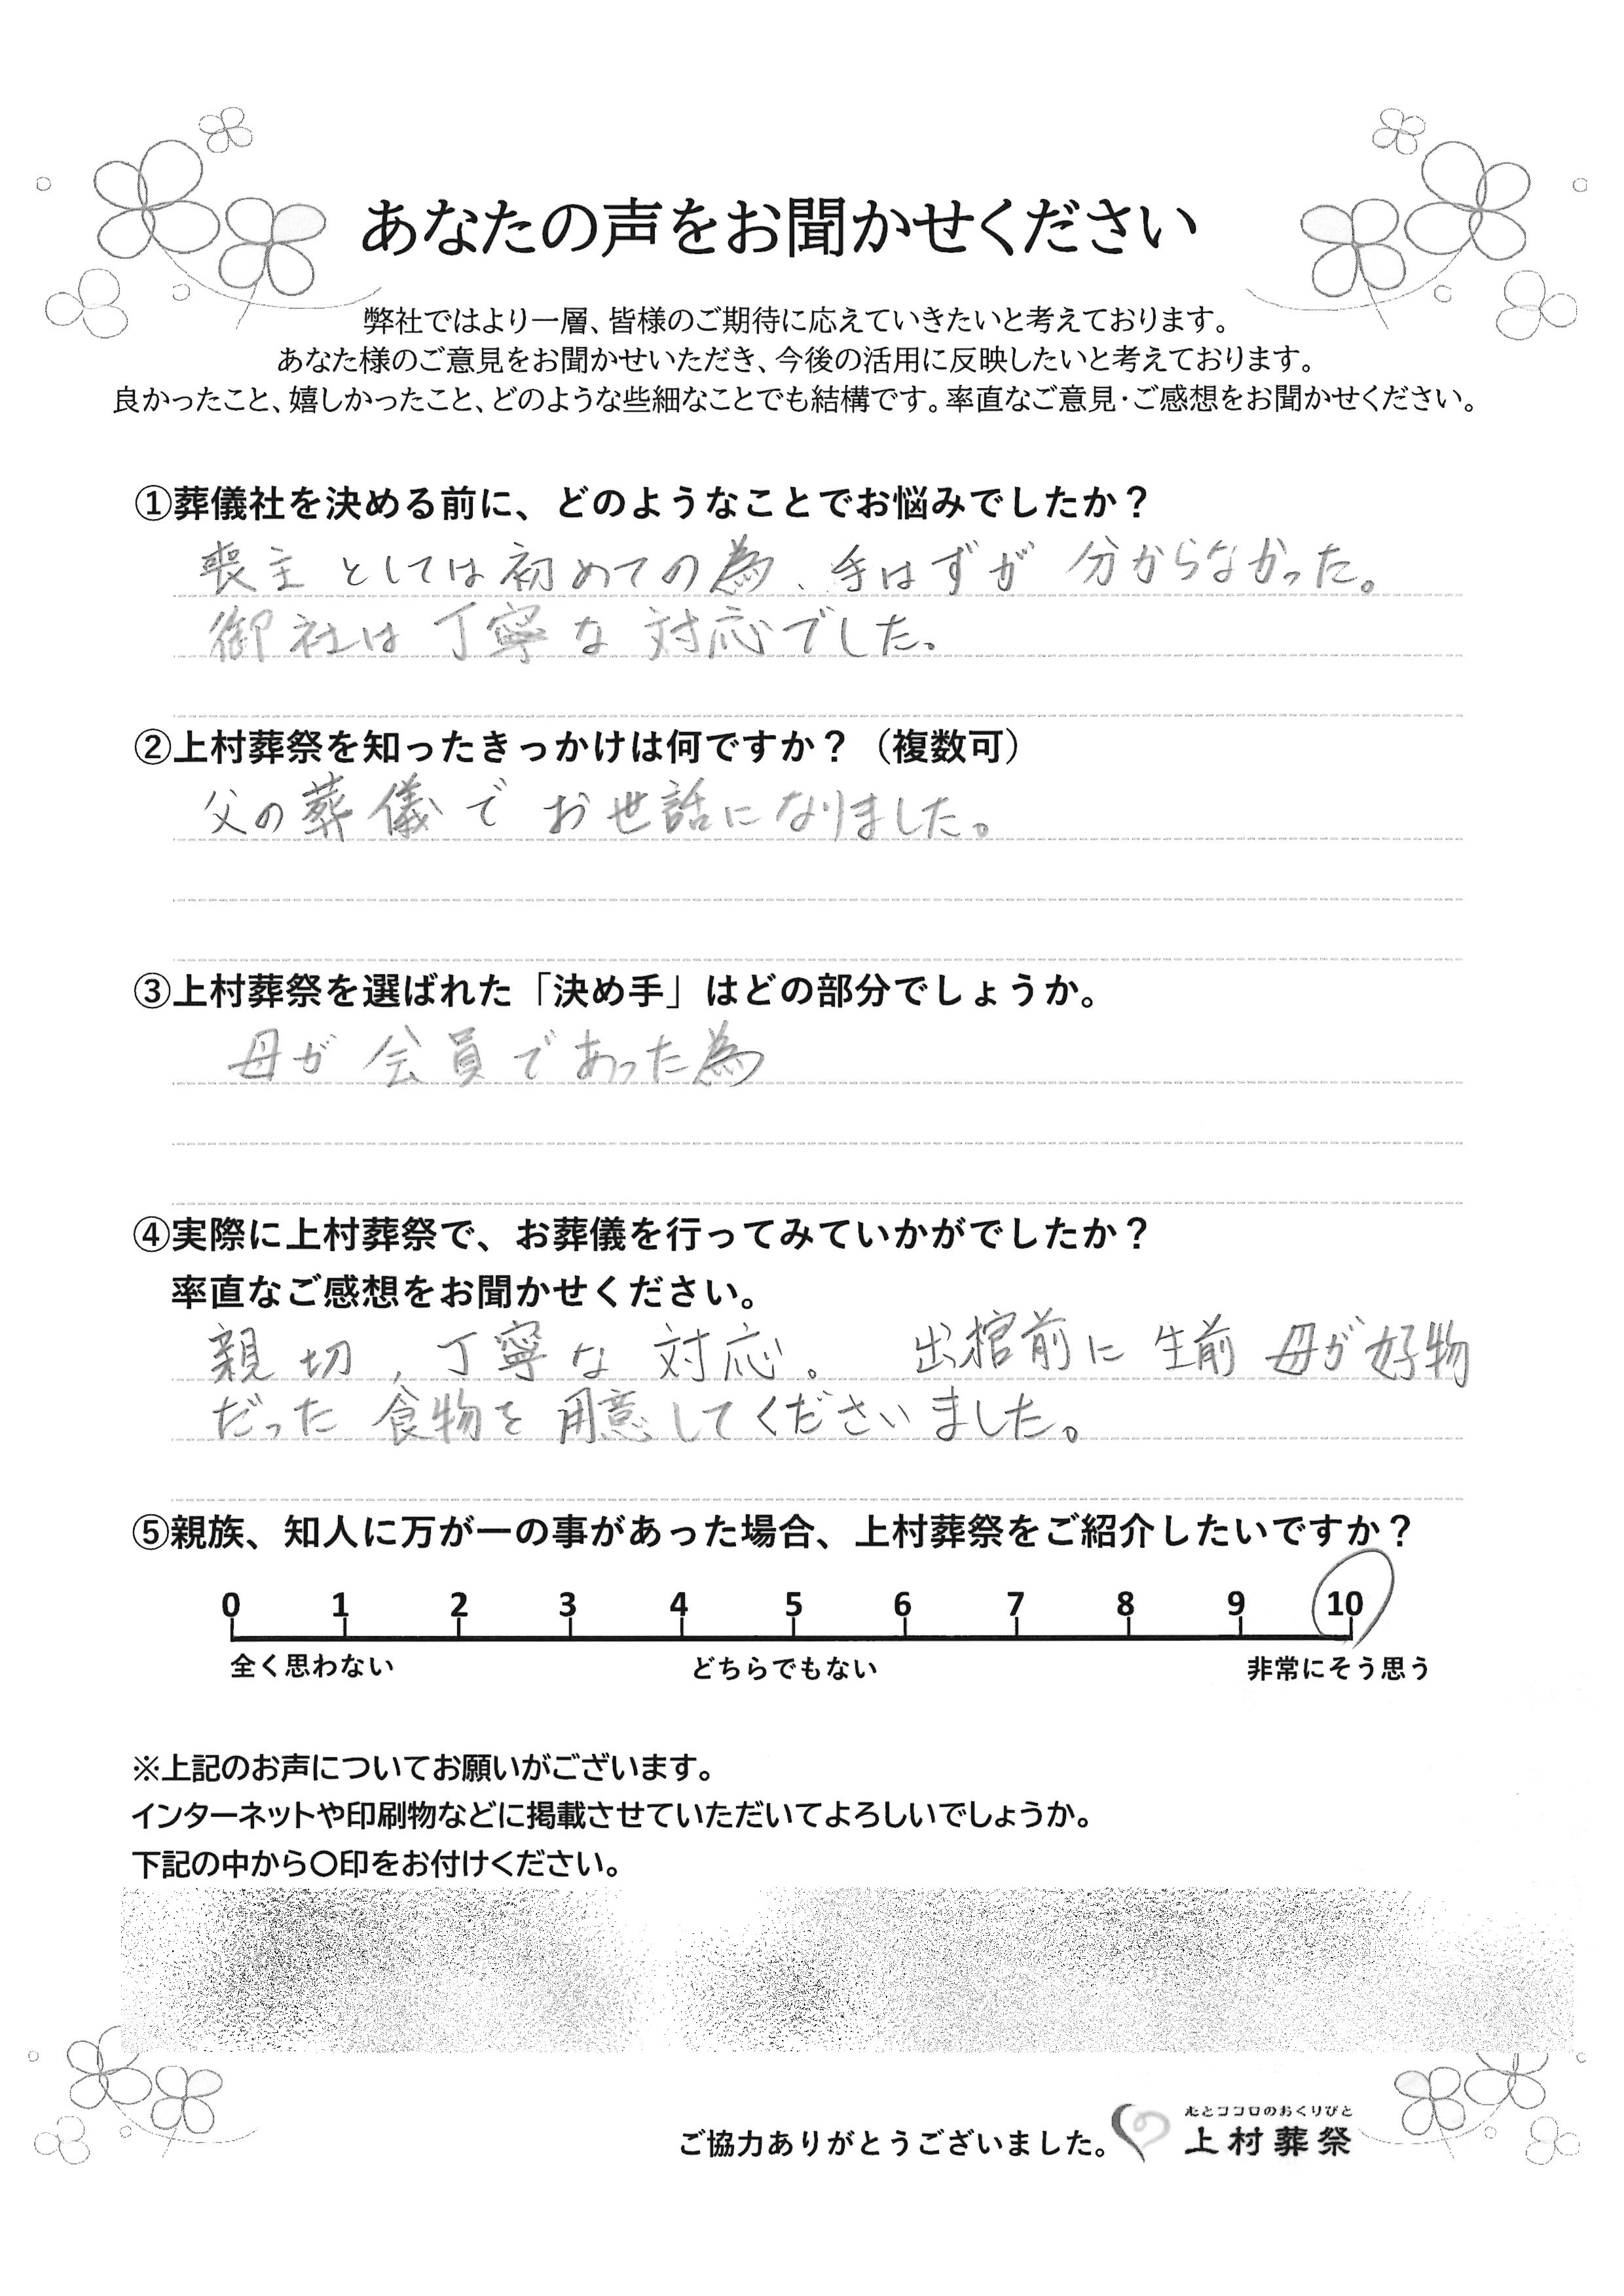 あなたの声をお聞かせください
弊社ではより一層、皆様のご期待に応えていきたいと考えております。
あなた様のご意見をお聞かせいただき、今後の活用に反映したいと考えております。
良かったこと、嬉しかったこと、どのような些細なことでも結構です。率直なご意見・ご感想をお聞かせください。
①葬儀社を決める前に、どのようなことでお悩みでしたか？
喪主としては初めての為、手はずが分からなかった。
御社は丁寧な対応でした。
②上村葬祭を知ったきっかけは何ですか？（複数可）
父の葬儀でお世話になりました。
③上村葬祭を選ばれた「決め手」はどの部分でしょうか。
母が会員であった為
④実際に上村葬祭で、お葬儀を行ってみていかがでしたか？
率直なご感想をお聞かせください。
親切、丁寧な対応。出棺前に生前母が好物
だった食物を用意してくださいました。
⑤親族、知人に万が一の事があった場合、上村葬祭をご紹介したいですか？
0 1 2 3 4 5 6 7 8 9 10
全く思わない どちらでもない 非常にそう思う
※上記のお声についてお願いがございます。
インターネットや印刷物などに掲載させていただいてよろしいでしょうか。
下記の中から〇印をお付けください。
ご協力ありがとうございました。
とココロのおくりびと
上村葬祭